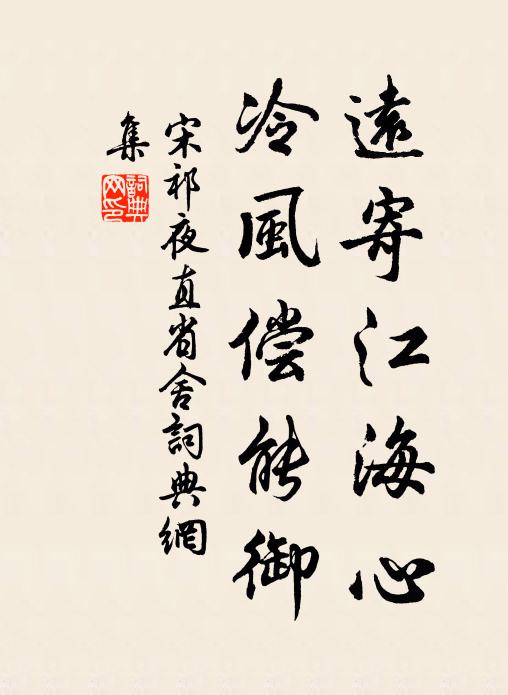 遠寄江海心
冷風偿能御
宋祁夜直省舍詞典網
集
詞典網印